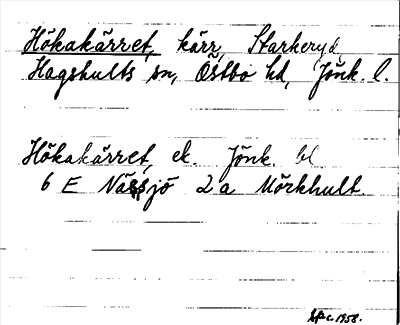 Hökakärret, kärr, Starkeryd,
Hagshults sn, Östbo hd, Jönk. l.
Hökakärret, ek. Jönk. bl
6 E Nässjö 2 a Mörkhult.
1958.